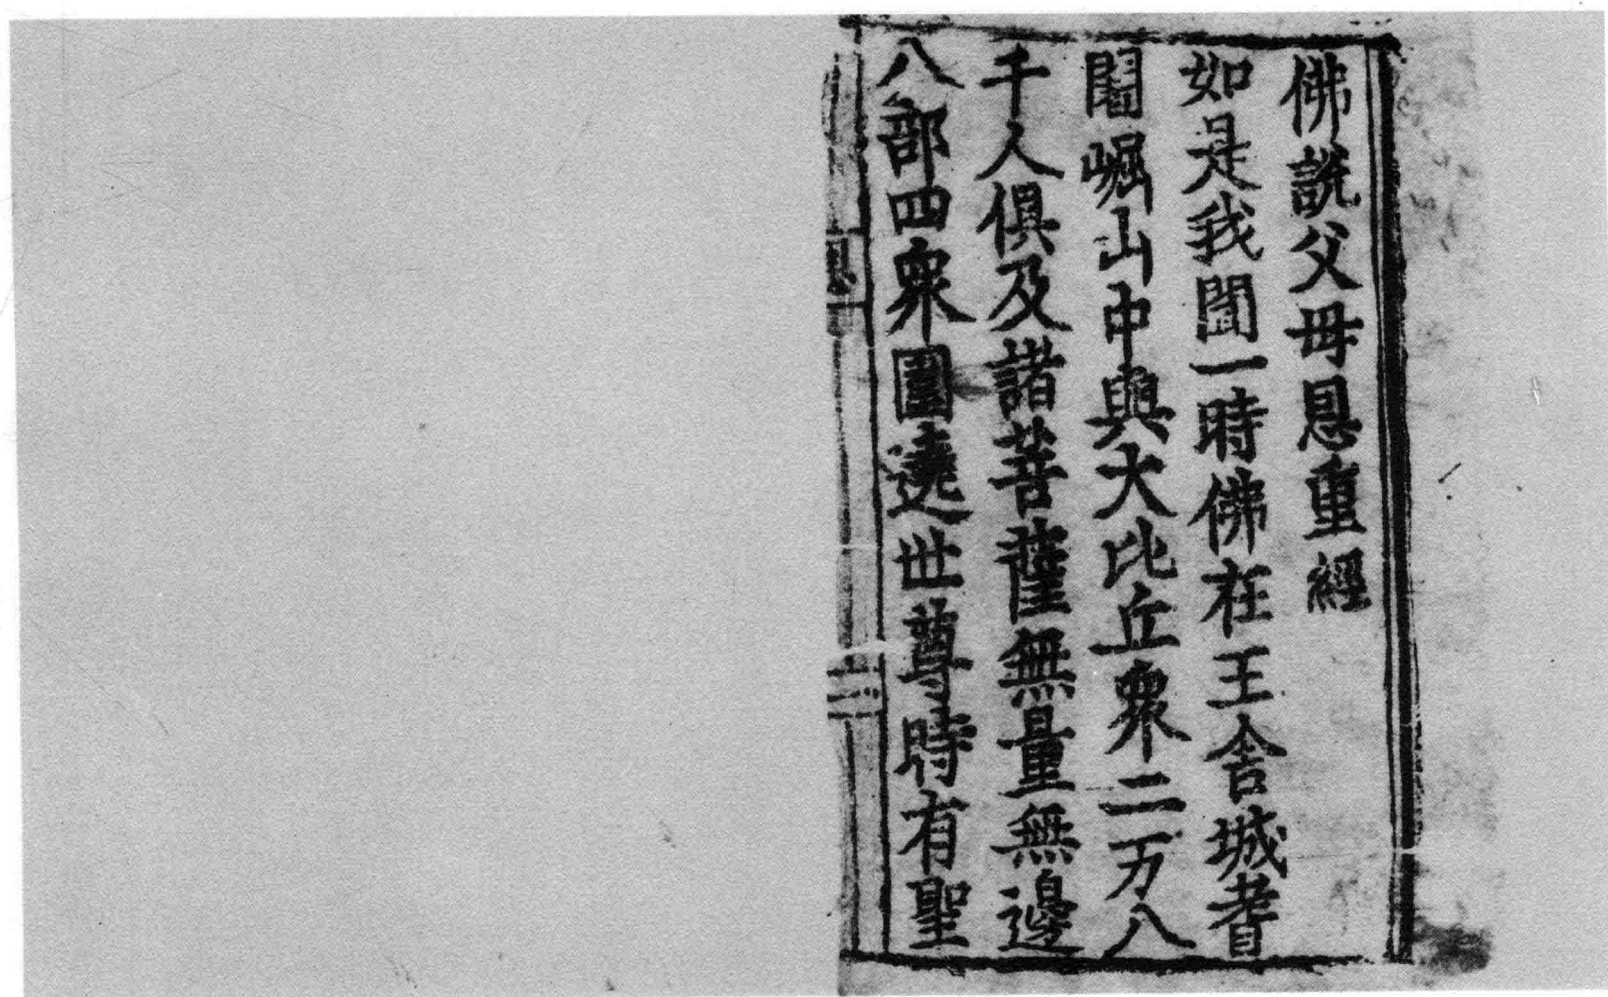 佛說父母恩重經
如是我聞一時佛在王舍城耆
闍崛山中與大比丘衆二万八
千人俱及諸菩薩無量無邊
八部四衆圍遶世尊時有聖
二